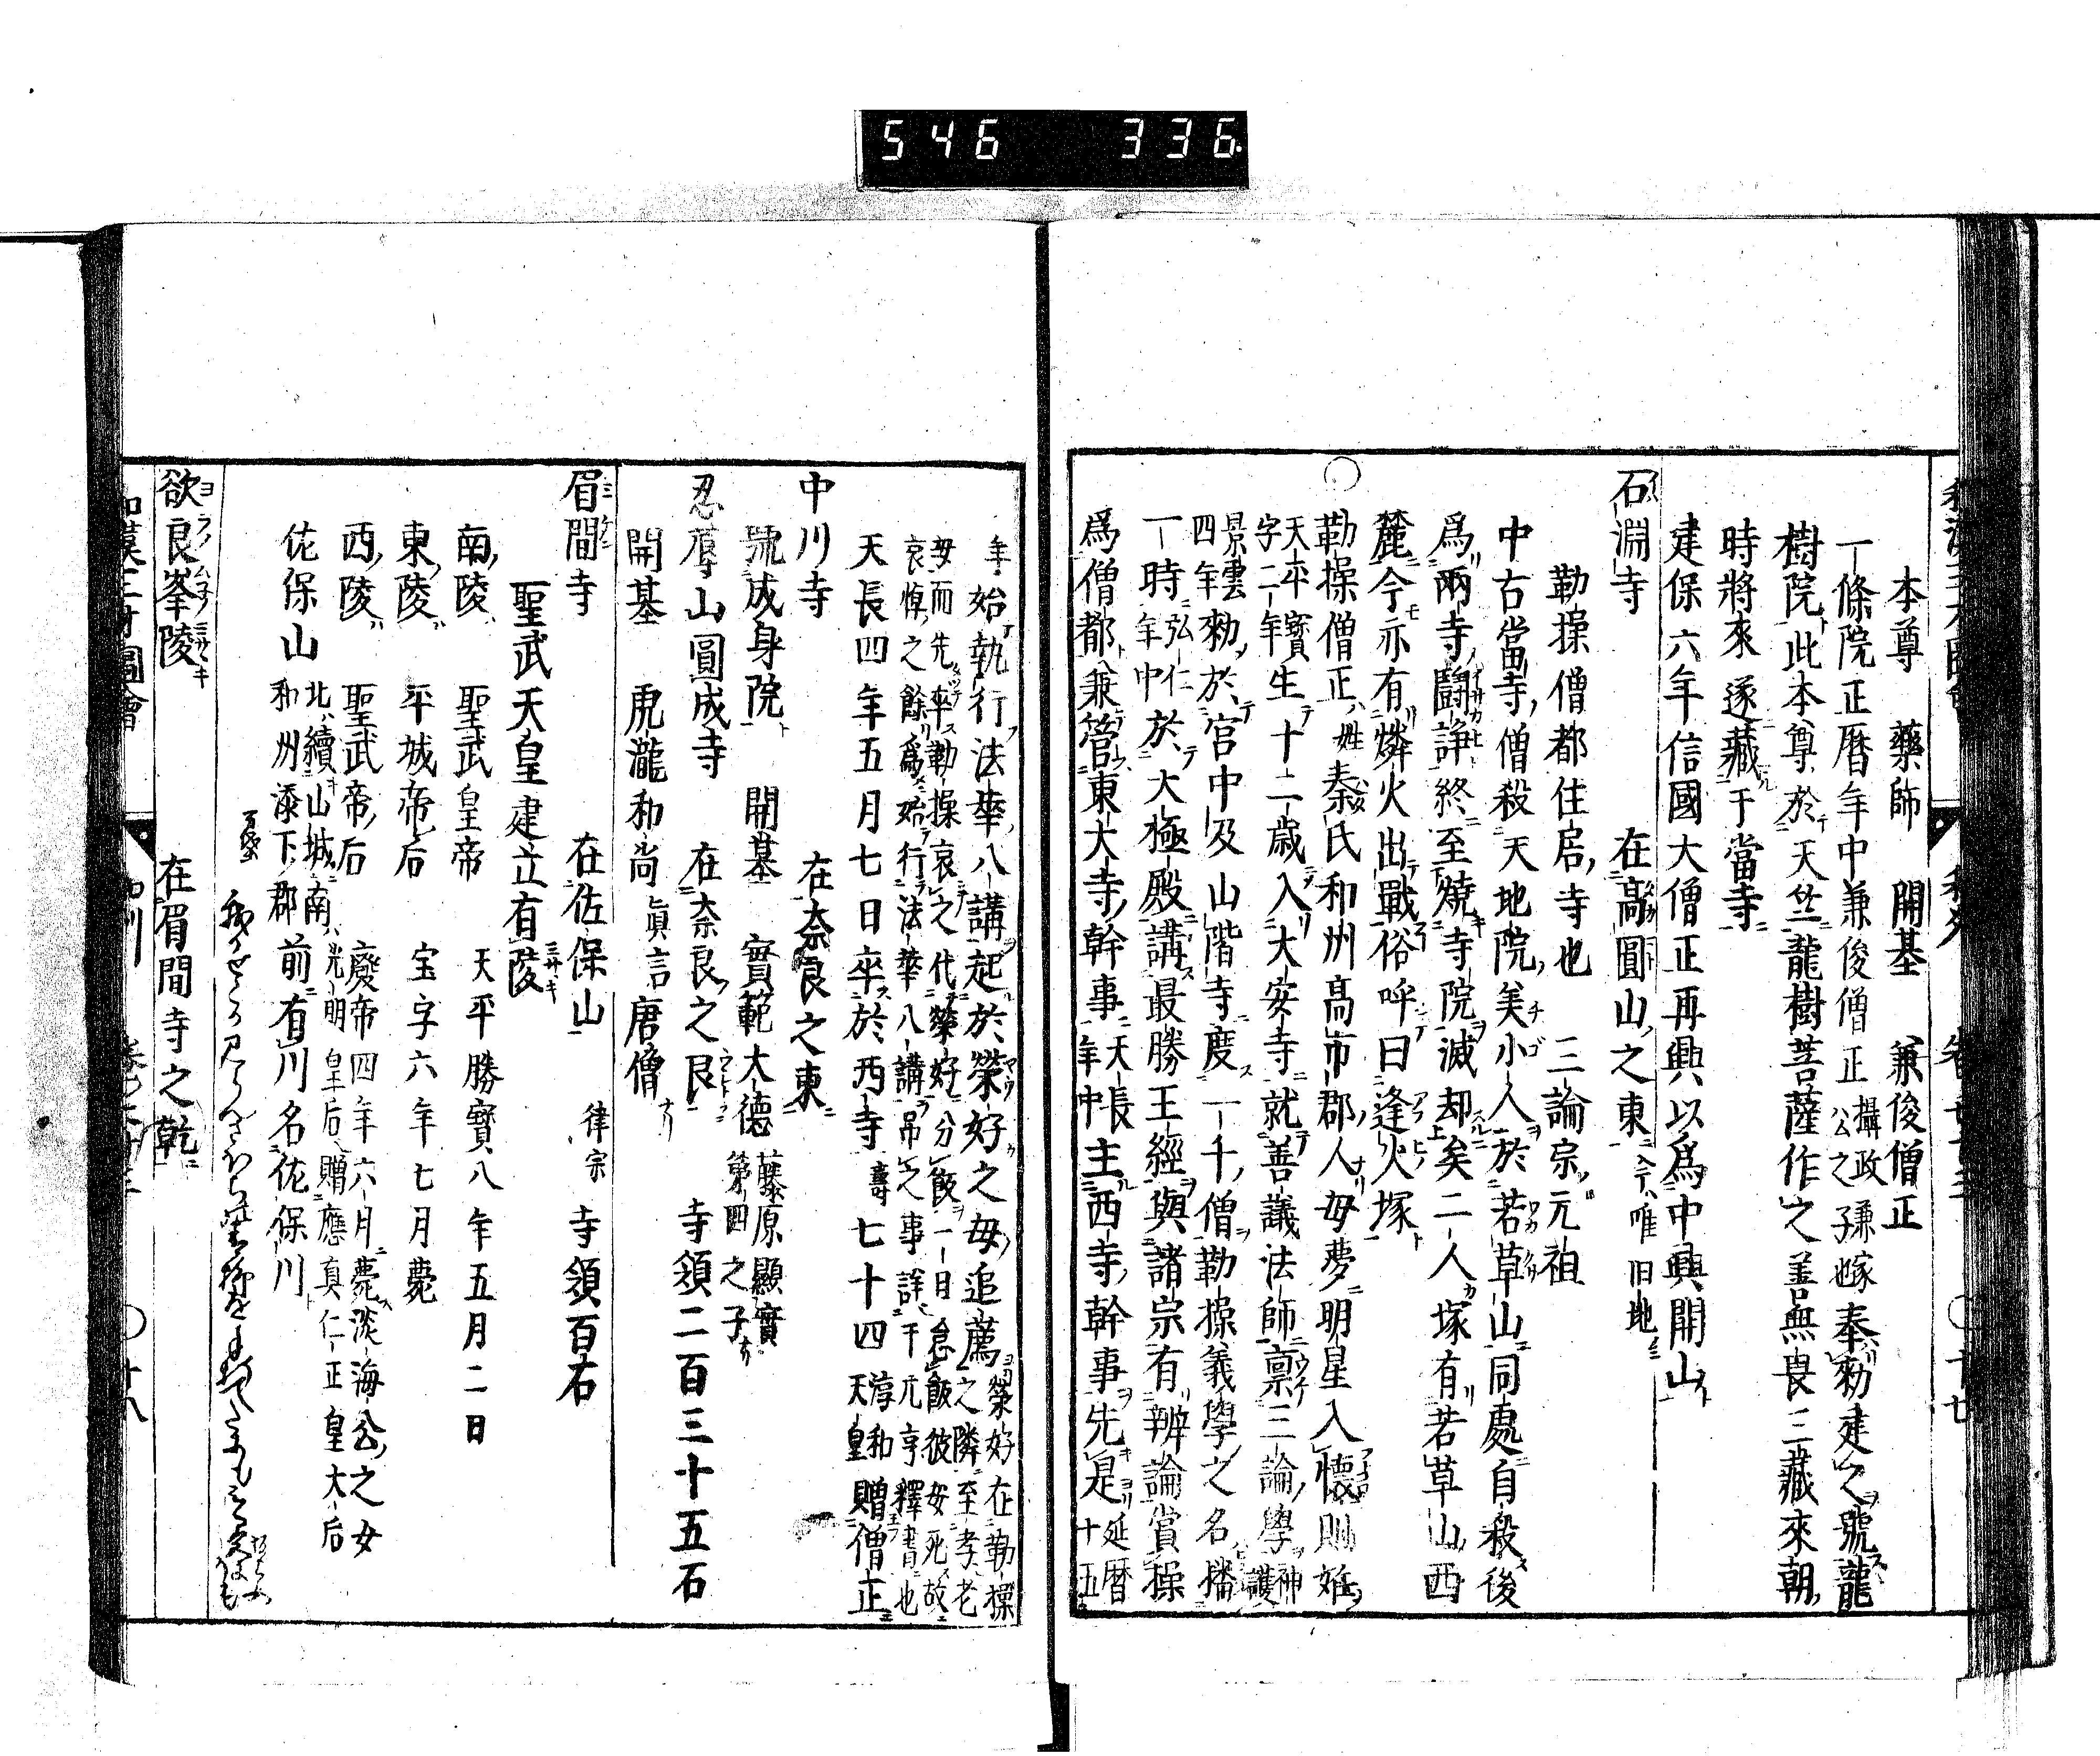 546 336
本尊 藥師 開基 兼俊僧正
一條院正暦年中兼俊僧正攝政兼家公之子也奉勅建之號龍
樹院此本尊於天竺龍樹菩薩作之善無畏三藏來朝
時將來遂藏于當寺
建保六年信國大僧正再興以爲中興開山
石淵寺 在高圓山之東今唯旧地
勤操僧都住居寺也 三論宗元祖
中古當寺僧殺天地院美小人於若草山同處自殺後
爲兩寺鬪諍終至燒寺院滅却矣二人塚有若草山西
麓今亦有燐火出戰俗呼曰逢火塚
○勤操僧正姓秦氏和州高市郡人母夢明星入懷則姙
天平寳字二年生十二歳入大安寺就善議法師禀三論學神護
景雲四年勅於宮中及山階寺度一千僧勤操義學之名播
一時弘仁年中於大極殿講最勝王經與諸宗有辨論賞操
爲僧都兼管東大寺幹事天長年中主西寺幹事先是延暦十五
年始執行法華八講起於榮好之母追薦榮好在勤操之隣至孝老
母而先卒勤操哀之代榮好分飯一日怠飯彼母死故
哀悼之餘爲始行法華八講吊之事詳于元亨釋書也
天長四年五月七日卒於西寺壽七十四淳和天皇贈僧正
中川寺 在奈良之東
號成身院 開基 實範大德藤原顯實第四之子
忍辱山圓成寺 在奈良之艮 寺領二百三十五石
開基 虎瀧和尚眞言唐僧
眉間寺 在佐保山 律宗 寺領百石
聖武天皇建立有陵
南陵 聖武皇帝 天平勝寳八年五月二日
東陵 平城帝后 宝字六年七月薨
西陵 聖武帝后 廢帝四年六月薨淡海公之女
光明皇后贈應真仁正皇大后
佐保山 北續山城南和州添下郡 前有川名佐保川
万葉
欲良峯陵 在眉間寺之乾